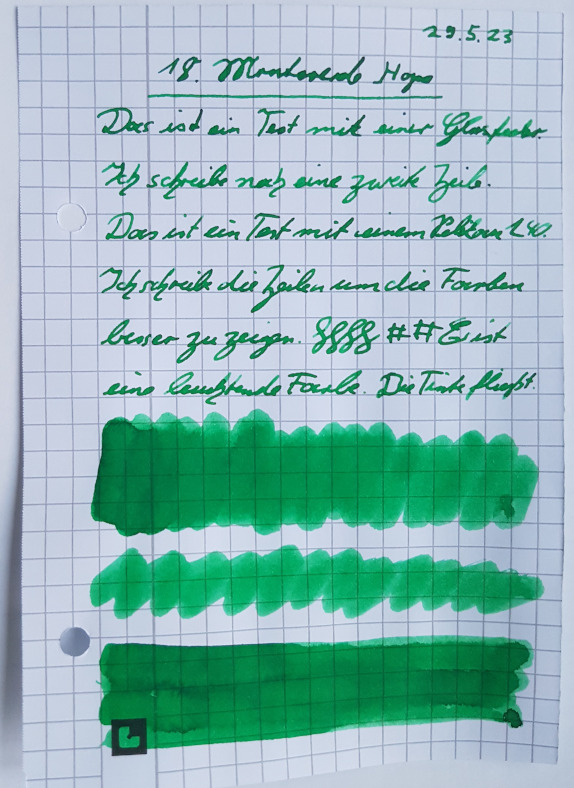 29.5.23
18. Monteverde Hope
Das ist ein Test mit einer Glasfeder.
Ich schreibe noch eine zweite Zeile.
Das ist ein Test mit einem Pelikan 140.
Ich schreibe die Zeilen um die Farben
besser zu zeigen. §§§§ ## Es ist
eine leuchtende Farbe. Die Tinte fließt.